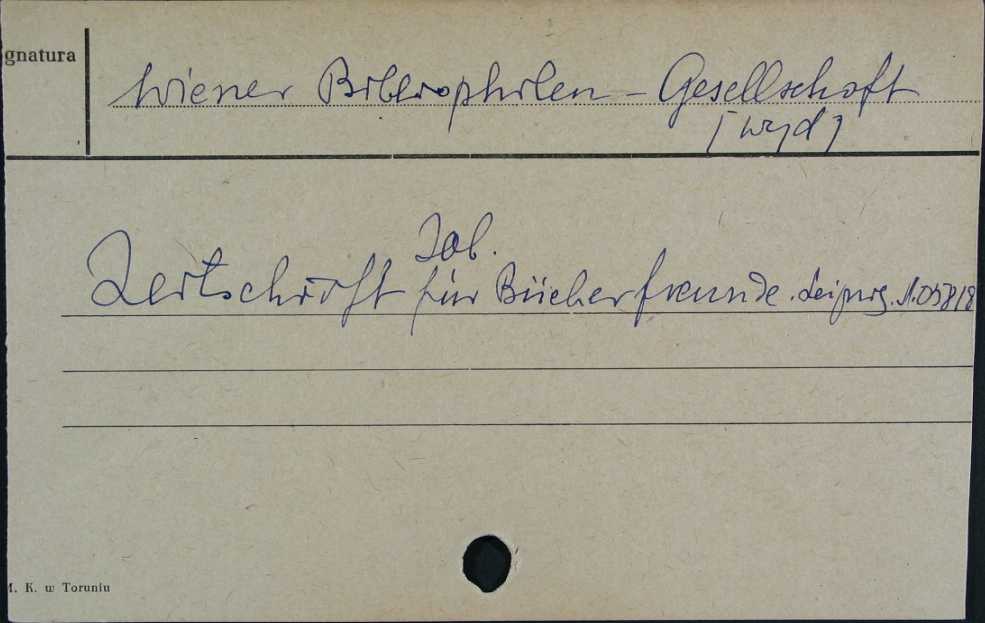 gnatura
Wiener Bibliophilen - Gesellschaft
[wyd]
Zob.
Zeitschrift für Bücherfreunde. Leipzig. 1.05818
M. K. w Toruniu